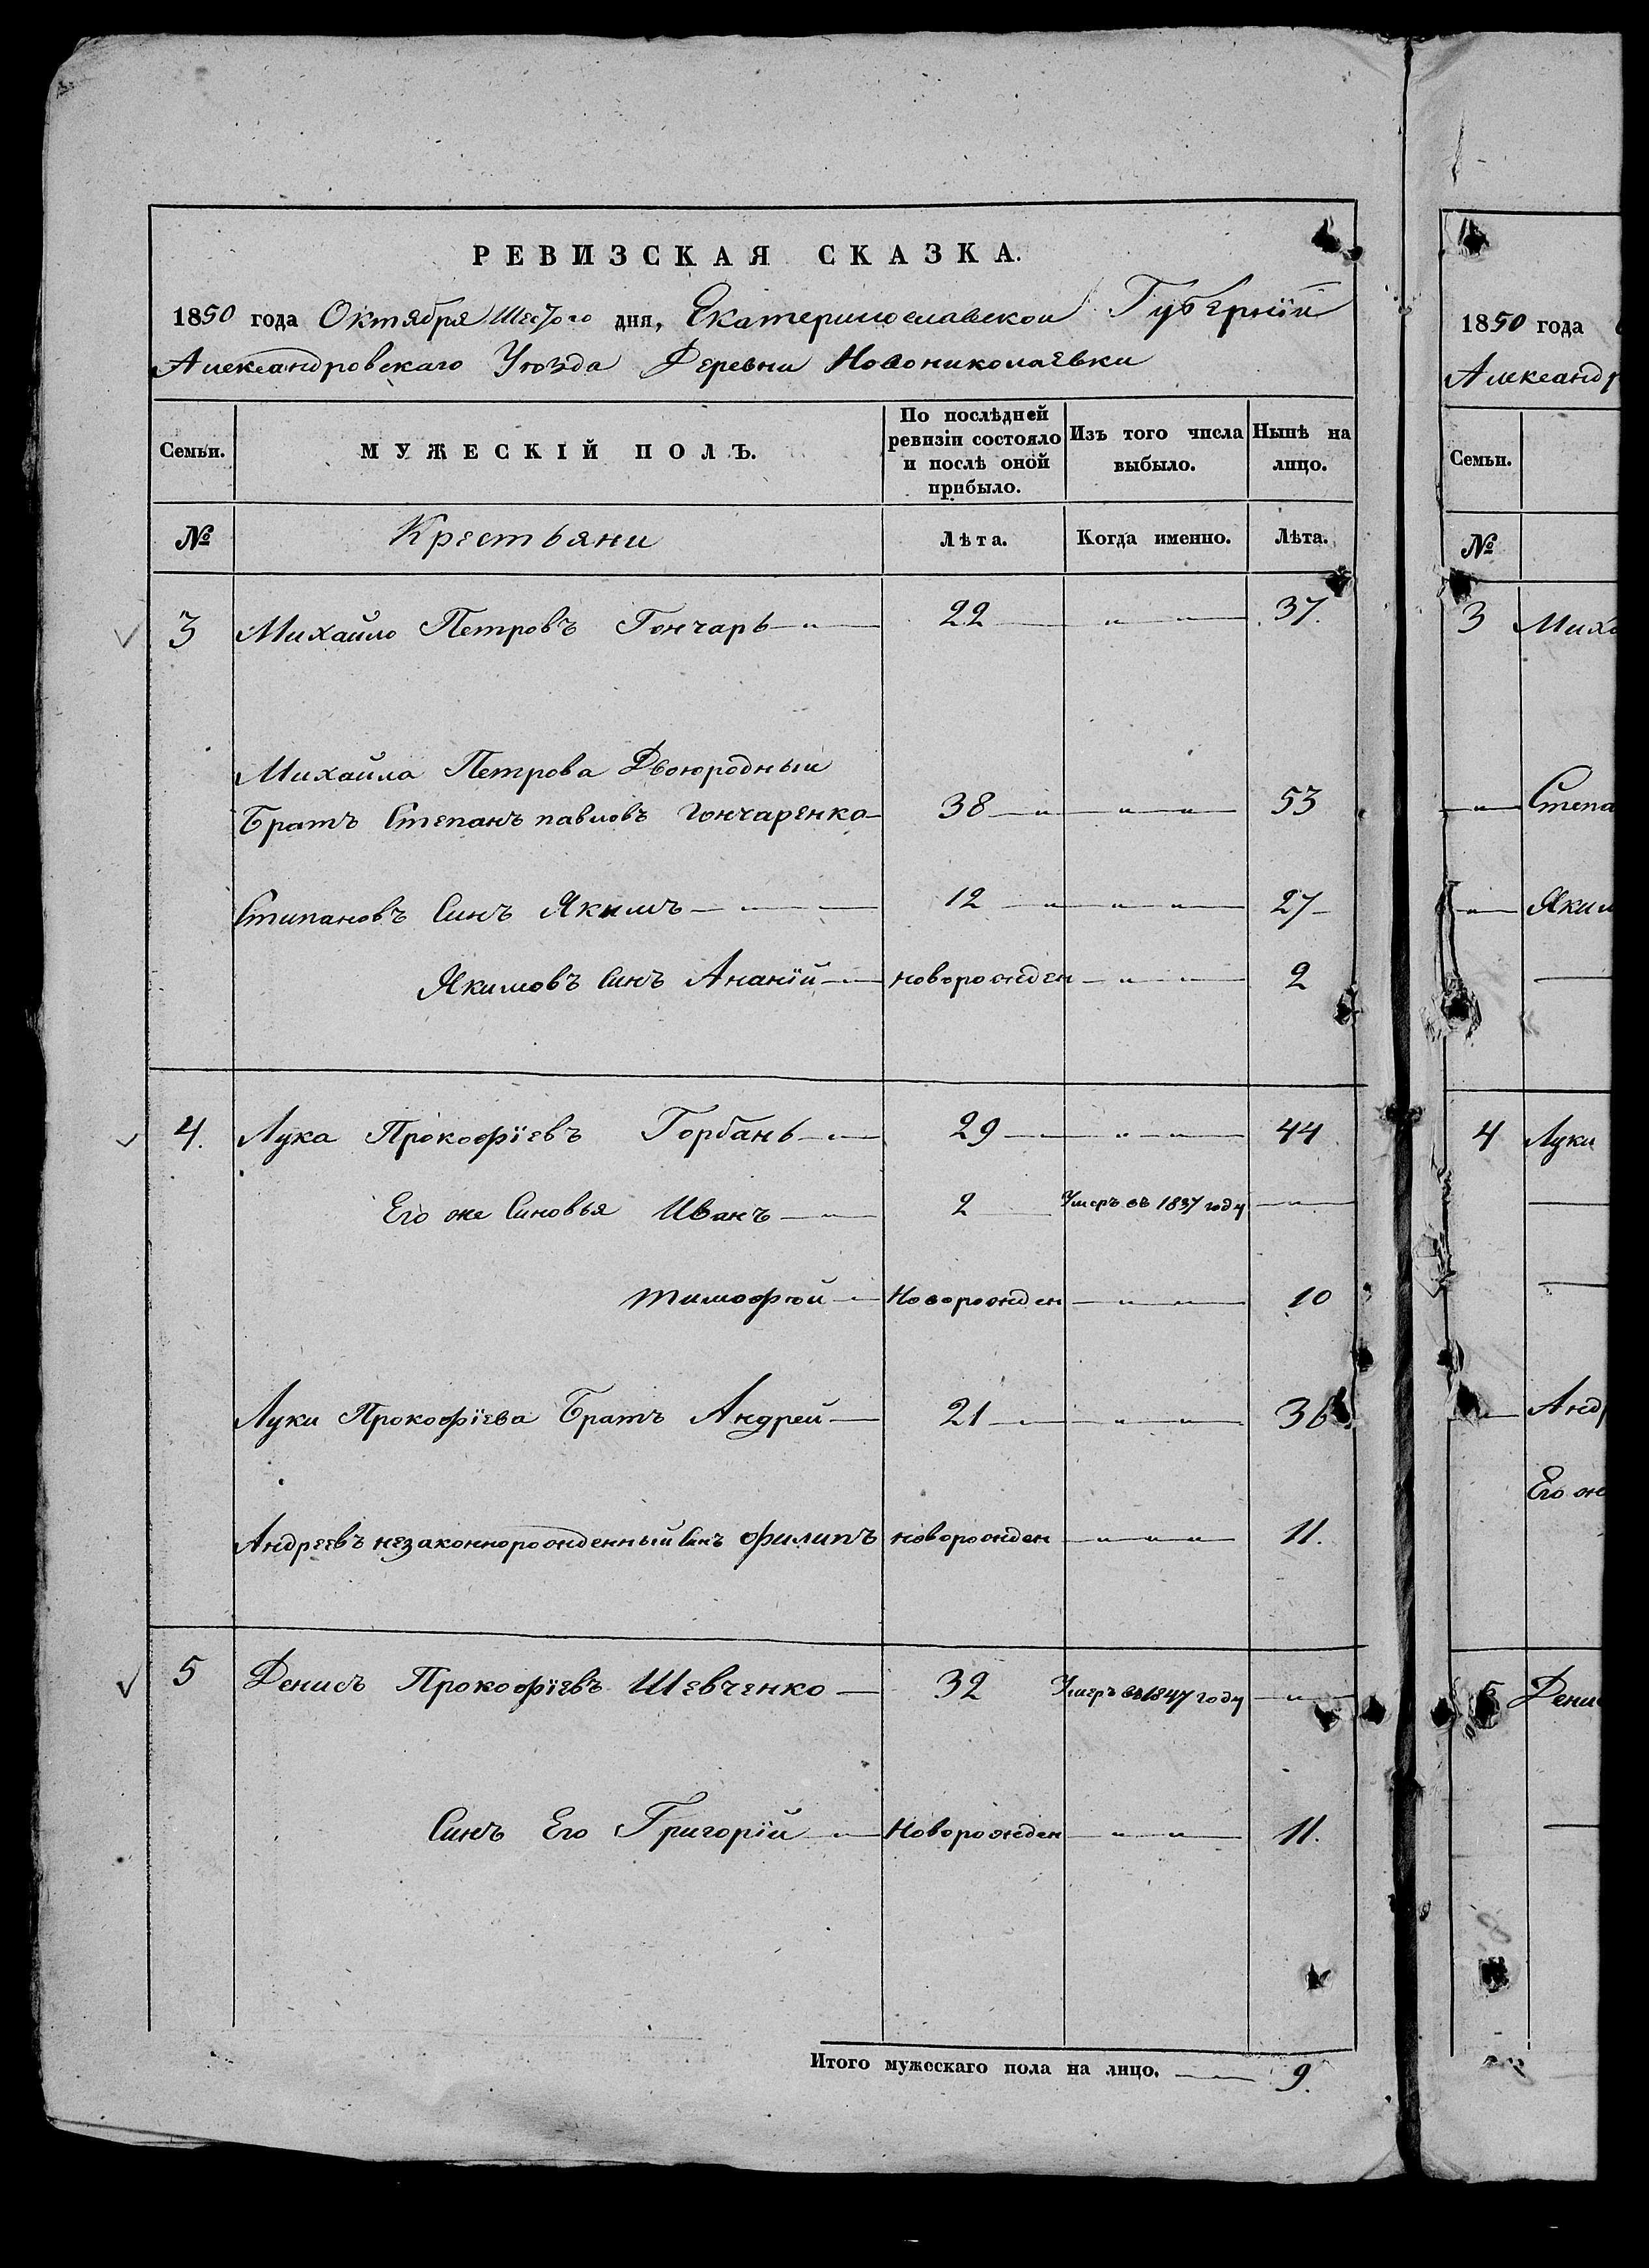 РЕВИЗСКАЯ СКАЗКА.
1850 года Октября Шестого дня, Екатеринославской Губернїи
Александровскаго Уѣзда Деревни Новониколаевки
Семьи.
МУЖЕСКІЙ ПОЛЪ.
По послѣдней ревизіи состояло и послѣ оной прибыло.
Изъ того числа выбыло.
Нынѣ на лицо.
№ Крестьяни Лѣта. Когда именно. Лѣта.
3 Михайло Петровъ Гончарь 22 37.
Михайла Петрова Двоюродный
Братъ Степанъ павловъ гончаренко 38 53
Стипановъ Синъ Якимъ 12 27
Якимовъ Синъ Ананїй новорожден 2
4. Лука Прокофїевъ Горбань 29 44
Его же Синовья Иванъ 2 Умеръ въ 1837 году
тимофѣй Новорожден 10
Луки Прокофїева Братъ Андрей 21 36
Андреевъ незаконнорожденный Синъ филипъ новорожден 11.
5 Денисъ Прокофїевъ Шевченко 32 Умеръ въ 1847 году
Синъ Его Григорїй Новорожден 11.
Итого мужескаго пола на лицо. 9.
1850 года
Александр
Семьи.
№
3 Миха
Степа
Яким
4 Луки
Андр
Его же
5 Дени